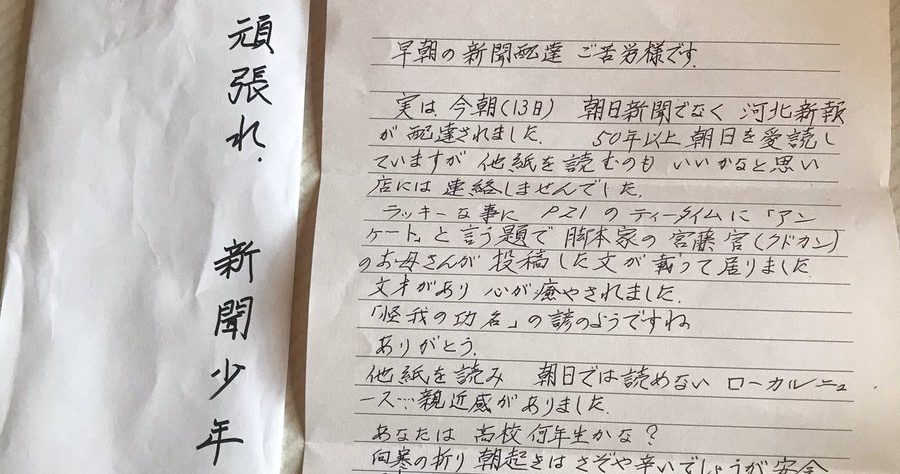 頑張れ.
新聞少年
早朝の新聞配達 ご苦労様です.
実は 今朝(13日) 朝日新聞でなく 河北新報
が 配達されました. 50年以上 朝日を愛読し
ていますが 他紙を読むのも いいかなと思い
店には 連絡しませんでした.
ラッキーな事に P21のティータイムに「アン
ケート」と言う題で 脚本家の 宮藤官(クドカン)
のお母さんが 投稿した文が 載って居りました
文才があり 心が癒やされました.
「怪我の功名」の諺のようですね
ありがとう.
他紙を読み 朝日では読めない ローカルニュ
ース…親近感がありました.
あなたは 高校何年生かな?
向寒の折り 朝起きは さぞや辛いでしょうが 安全